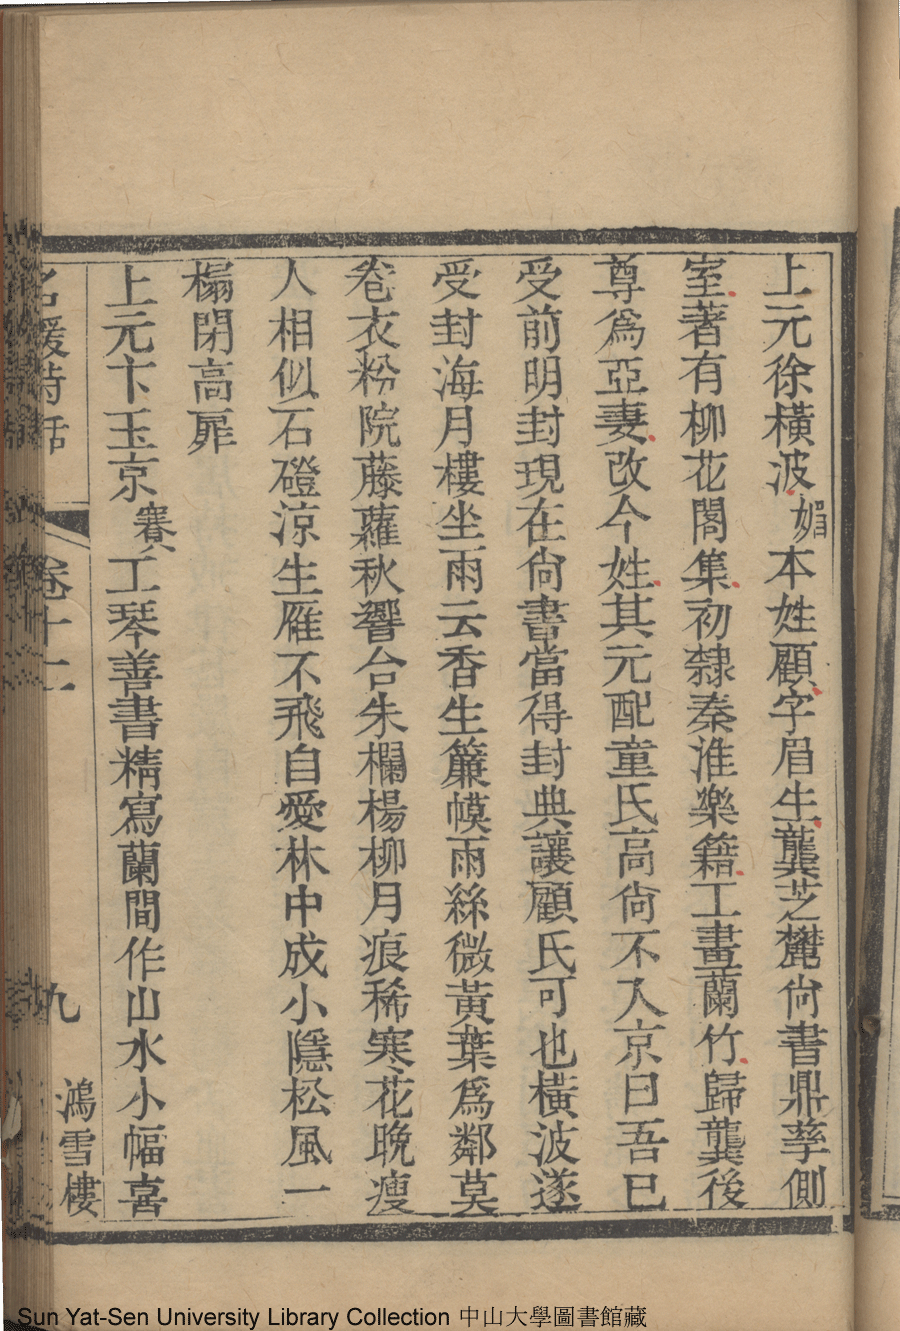 上元徐橫波媚本姓顧字眉生龔芝麓尙書鼎孳側
室著有柳花閣集初隸秦淮樂籍工畫蘭竹歸龔後
尊爲亞妻改今姓其元配童氏高尙不入京曰吾已
受前明封現在尙書當得封典讓顧氏可也橫波遂
受封海月樓坐雨云香生簾幙雨絲微黃葉爲鄰莫
卷衣粉院藤蘿秋響合朱欄楊柳月痕稀寒花晚瘦
人相似石磴涼生雁不飛自愛林中成小隱松風一
榻閉高扉
上元卞玉京賽工琴善書精寫蘭間作山水小幅喜
名媛詩話 卷十二 九 鴻雪樓
Sun Yat-Sen University Library Collection 中山大學圖書館藏